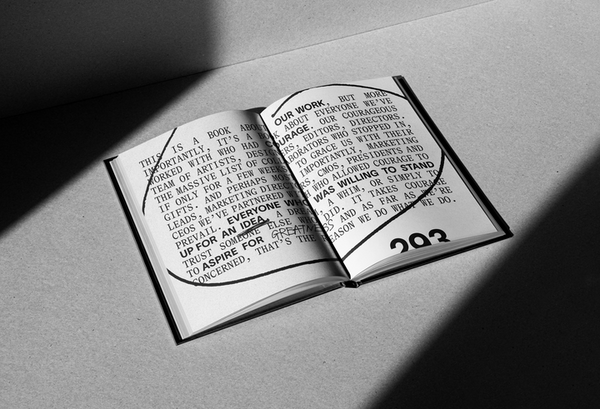 THIS IS A BOOK ABOUT OUR WORK, BUT MORE
IMPORTANTLY, IT'S A BOOK ABOUT EVERYONE WE'VE
WORKED WITH WHO HAD COURAGE. OUR COURAGEOUS
TEAM OF ARTISTS, DESIGNERS, EDITORS, DIRECTORS,
THE MASSIVE LIST OF COLLABORATORS WHO STOPPED IN,
IF ONLY FOR A FEW WEEKS, TO GRACE US WITH THEIR
GIFTS. AND PERHAPS MOST IMPORTANTLY, MARKETING
LEADS, MARKETING DIRECTORS, CMOS, PRESIDENTS AND
CEOS WE'VE PARTNERED WITH WHO ALLOWED COURAGE TO
PREVAIL. EVERYONE WHO WAS WILLING TO STAND
UP FOR AN IDEA, A DREAM, A WHIM, OR SIMPLY TO
TRUST SOMEONE ELSE WHO DID. IT TAKES COURAGE
TO ASPIRE FOR GREATNESS AND AS FAR AS WE'RE
CONCERNED, THAT'S THE REASON WE DO WHAT WE DO.
293